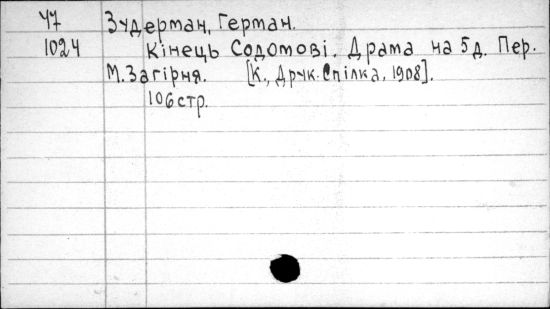 Ч7 Зудерман, Герман.
1024 Кінець Содомові. Драма на 5д. Пер.
М. Загірня. [К., Друк. Спілка, 1908].
106 стр.